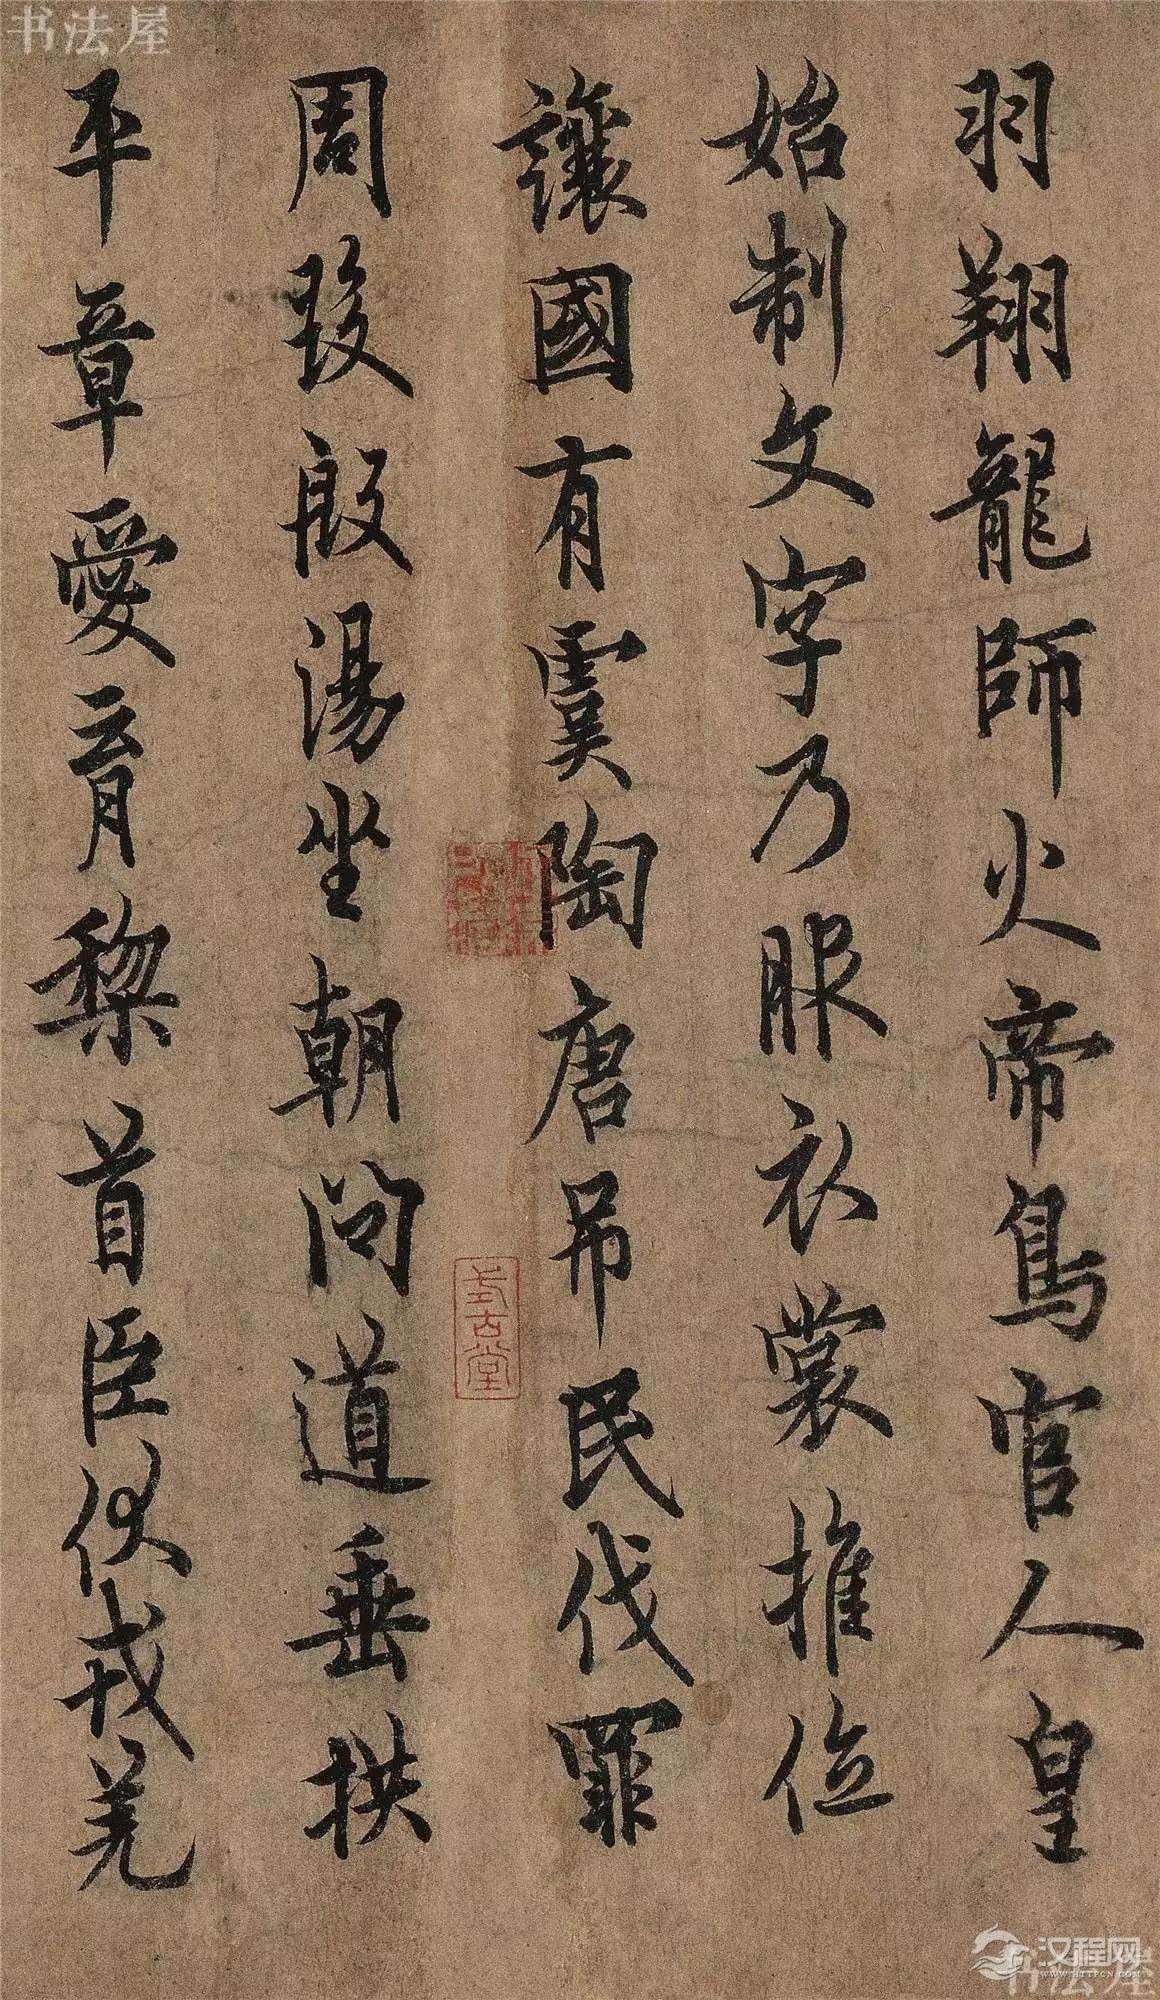 书法屋
羽翔龍師火帝鳥官人皇
始制文字乃服衣裳推位
讓國有虞陶唐吊民伐罪
周發殷湯坐朝問道垂拱
平章愛育黎首臣伏戎羌
式古堂
汉程网
WWW.HTTPCN.COM
书法屋